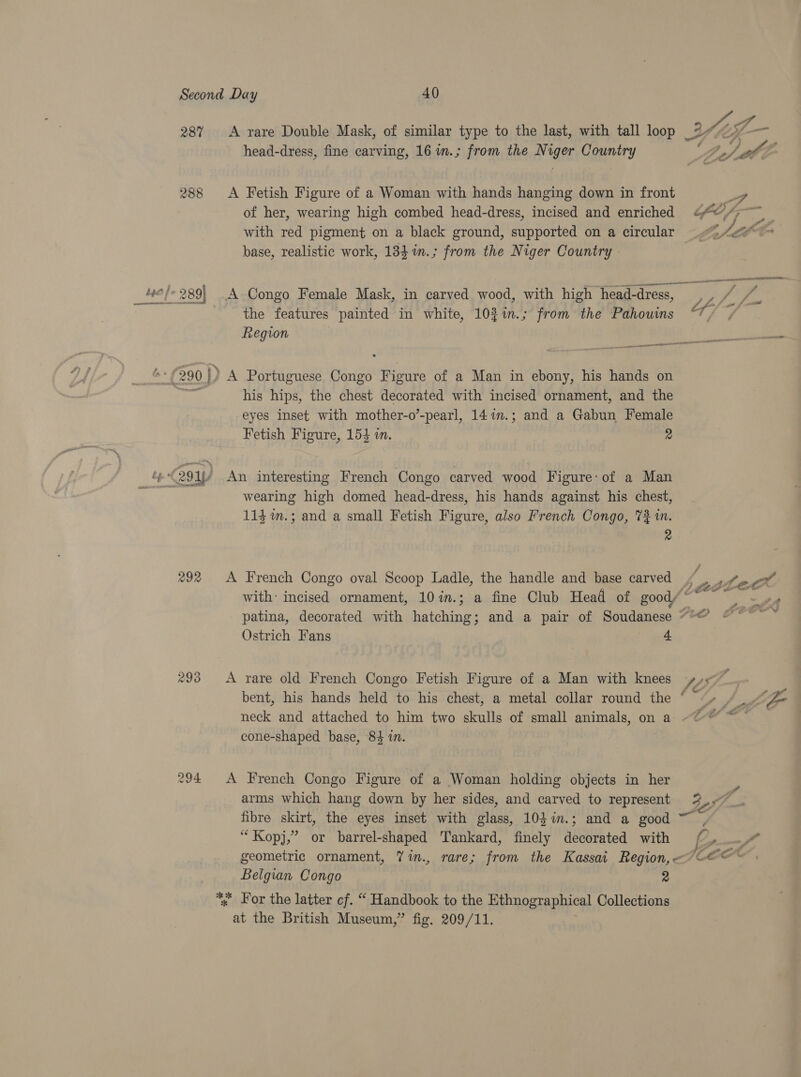 Second Day 40
287 A rare Double Mask, of similar type to the last, with tall loop
head-dress, fine carving, 16 in.; from the Niger Country
288 A Fetish Figure of a Woman with hands hanging down in front
of her, wearing high combed head-dress, incised and enriched
with red pigment on a black ground, supported on a circular
base, realistic work, 13½ in.; from the Niger Country
289 A Congo Female Mask, in carved wood, with high head-dress,
the features painted in white, 10¾ in.; from the Pahouins
Region
290 A Portuguese Congo Figure of a Man in ebony, his hands on
his hips, the chest decorated with incised ornament, and the
eyes inset with mother-o'-pearl, 14 in.; and a Gabun Female
Fetish Figure, 15½ in. 2
291 An interesting French Congo carved wood Figure of a Man
wearing high domed head-dress, his hands against his chest,
11½ in.; and a small Fetish Figure, also French Congo, 7¾ in.
2
292 A French Congo oval Scoop Ladle, the handle and base carved
with incised ornament, 10 in.; a fine Club Head of good
patina, decorated with hatching; and a pair of Soudanese
Ostrich Fans 4
293 A rare old French Congo Fetish Figure of a Man with knees
bent, his hands held to his chest, a metal collar round the
neck and attached to him two skulls of small animals, on a
cone-shaped base, 8½ in.
294 A French Congo Figure of a Woman holding objects in her
arms which hang down by her sides, and carved to represent
fibre skirt, the eyes inset with glass, 10½ in.; and a good
"Kopj," or barrel-shaped Tankard, finely decorated with
geometric ornament, 7 in., rare; from the Kassai Region,
Belgian Congo 2
*** For the latter cf. "Handbook to the Ethnographical Collections
at the British Museum," fig. 209/11.